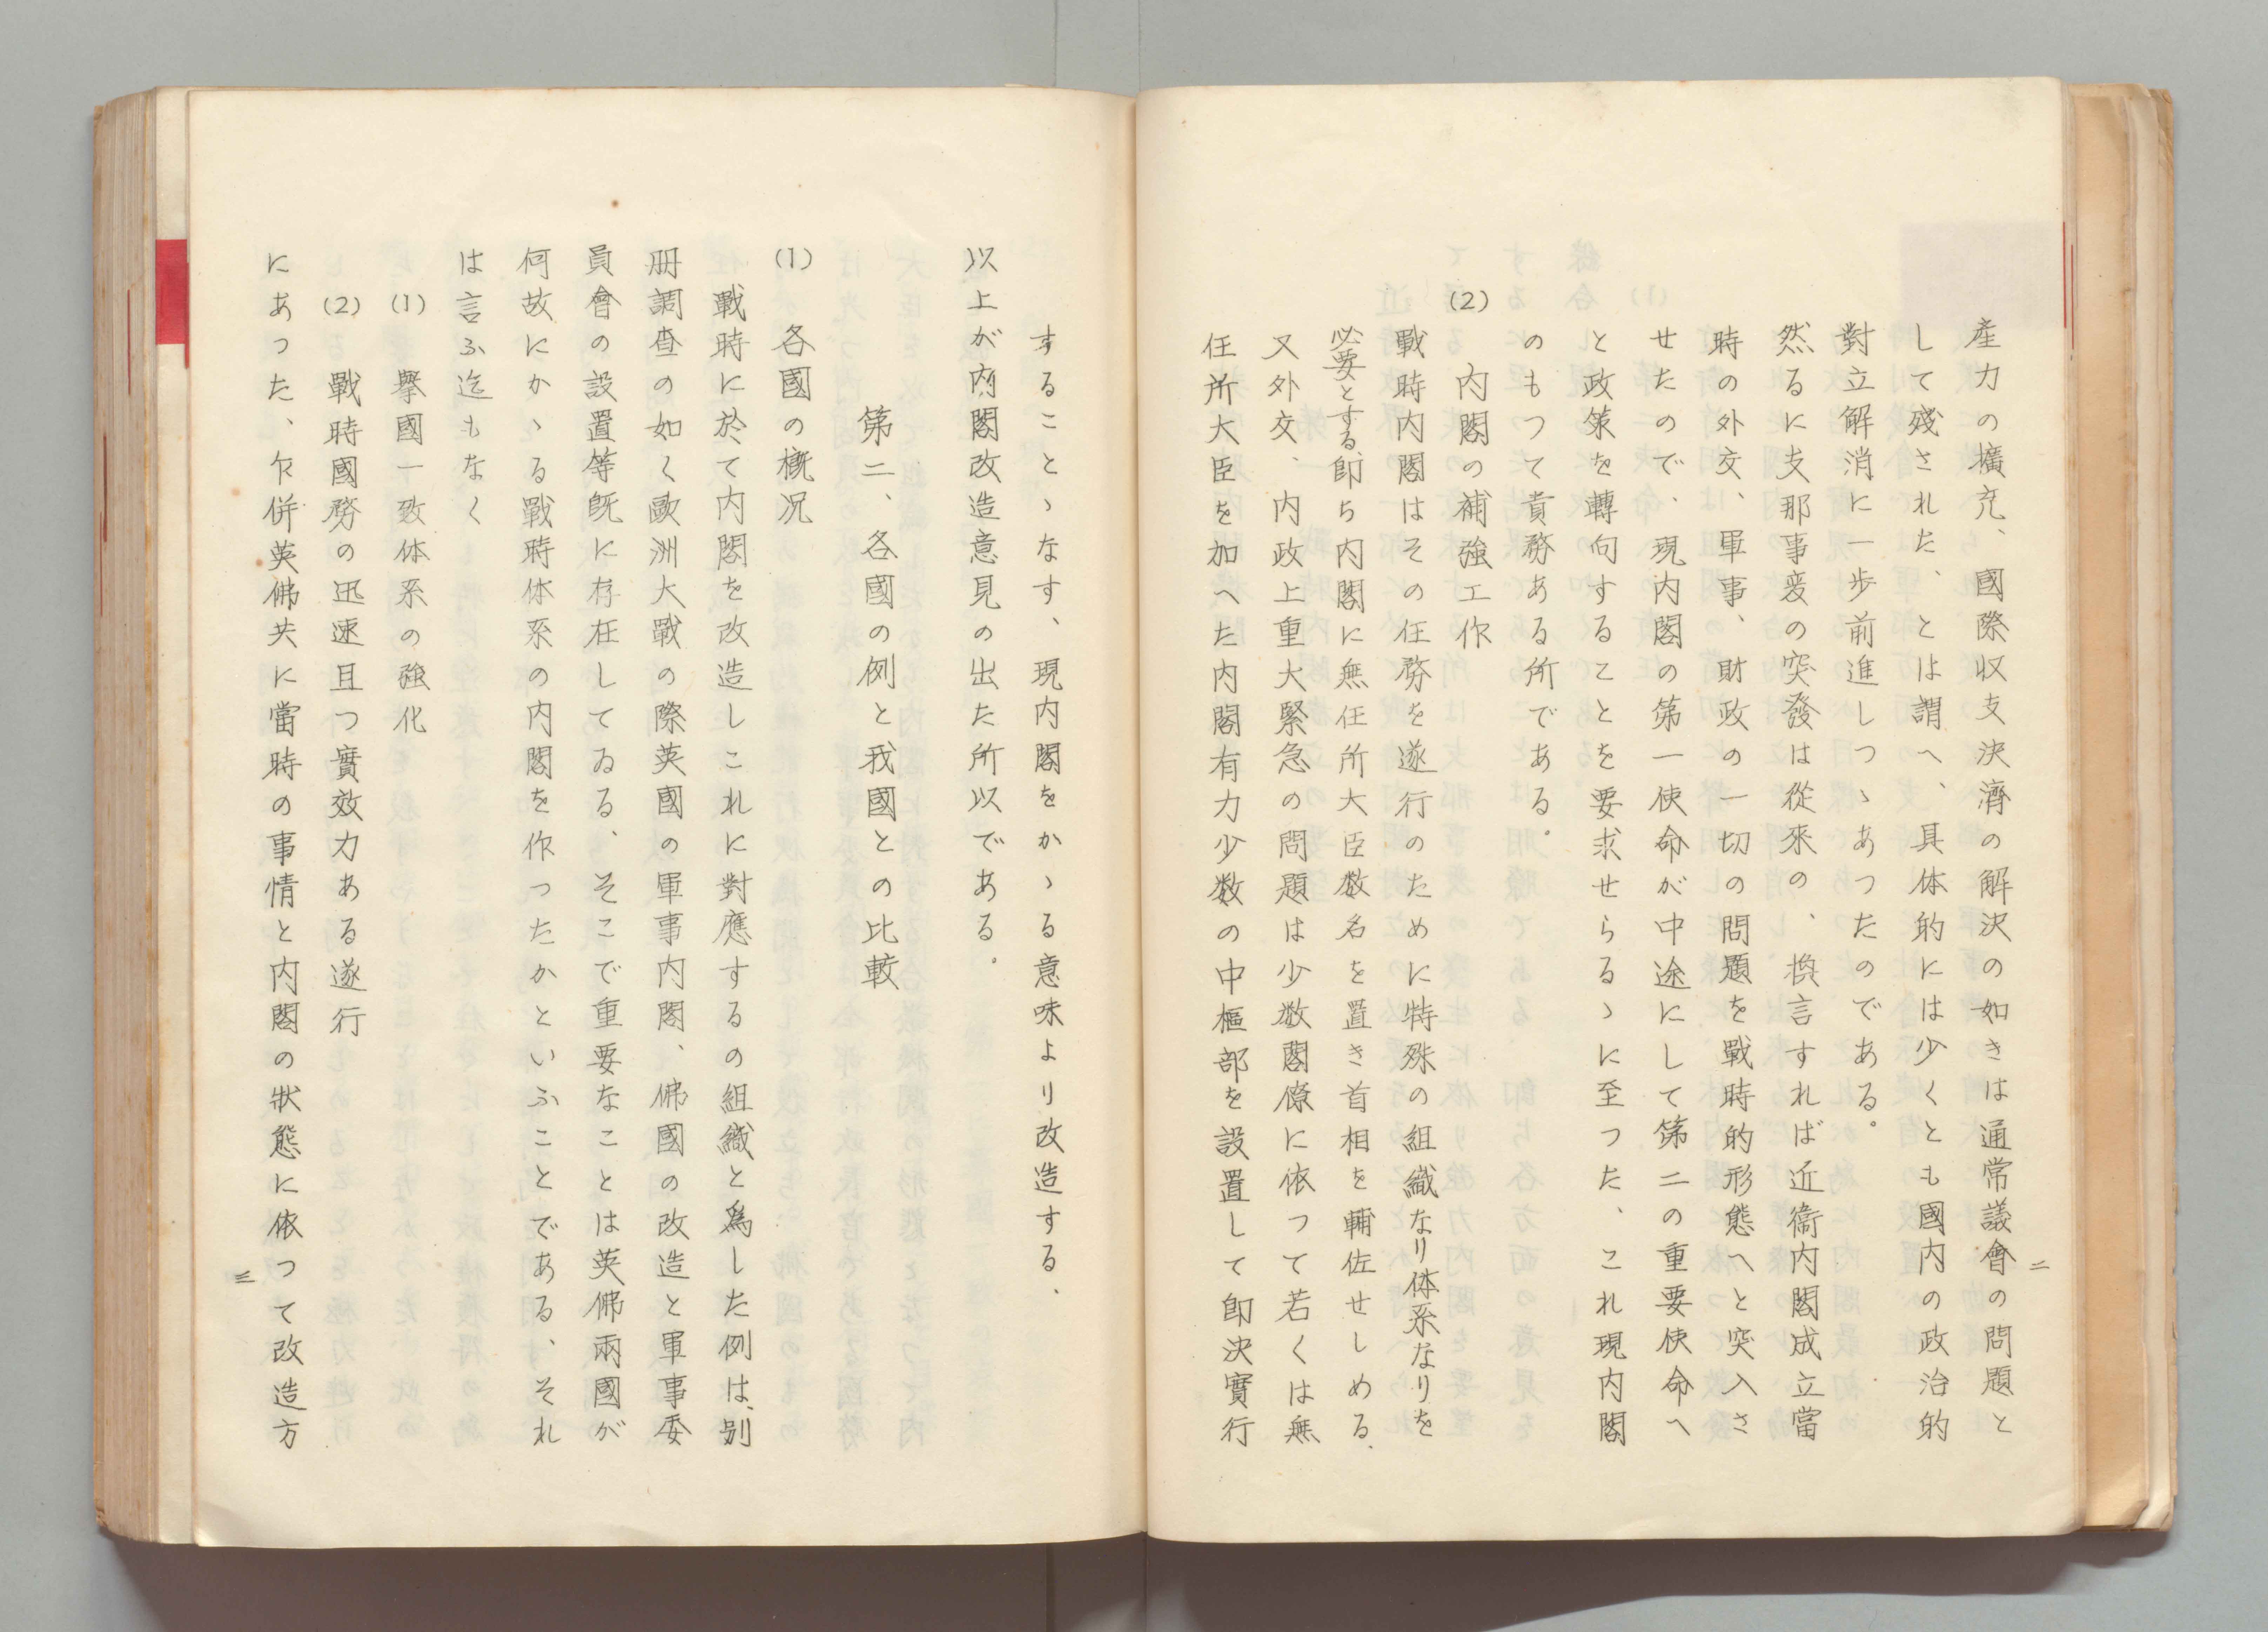 産力の擴充、國際収支決濟の解決の如きは通常議會の問題と
して殘された、とは謂へ、具体的には少くとも國内の政治的
對立解消に一歩前進しつゝあつたのである。
然るに支那事変の突發は從來の、換言すれば近衞内閣成立當
時の外交、軍事、財政の一切の問題を戰時的形態へと突入さ
せたので、現内閣の第一使命が中途にして第二の重要使命へ
と政策を轉向することを要求せらるゝに至つた、これ現内閣
のもつて責務ある所である。
(2) 内閣の補強工作
戰時内閣はその任務を遂行のために特殊の組織なり体系なりを
必要とする、即ち内閣に無任所大臣数名を置き首相を輔佐せしめる、
又外交、内政上重大緊急の問題は少数閣僚に依つて若くは無
任所大臣を加へた内閣有力少数の中樞部を設置して即決實行
二
することゝなす、現内閣をかゝる意味より改造する、
以上が内閣改造意見の出た所以である。
第二、各國の例と我國との比較
(1) 各國の概況
戰時に於て内閣を改造しこれに對應するの組織と爲した例は、別
册調査の如く歐洲大戰の際英國の軍事内閣、佛國の改造と軍事委
員會の設置等既に存在してゐる、そこで重要なことは英佛兩國が
何故にかゝる戰時体系の内閣を作つたかといふことである、それ
は言ふ迄もなく
(1) 擧國一致体系の強化
(2) 戰時國務の迅速且つ實效力ある遂行
にあつた、乍併英佛共に當時の事情と内閣の狀態に依つて改造方
三